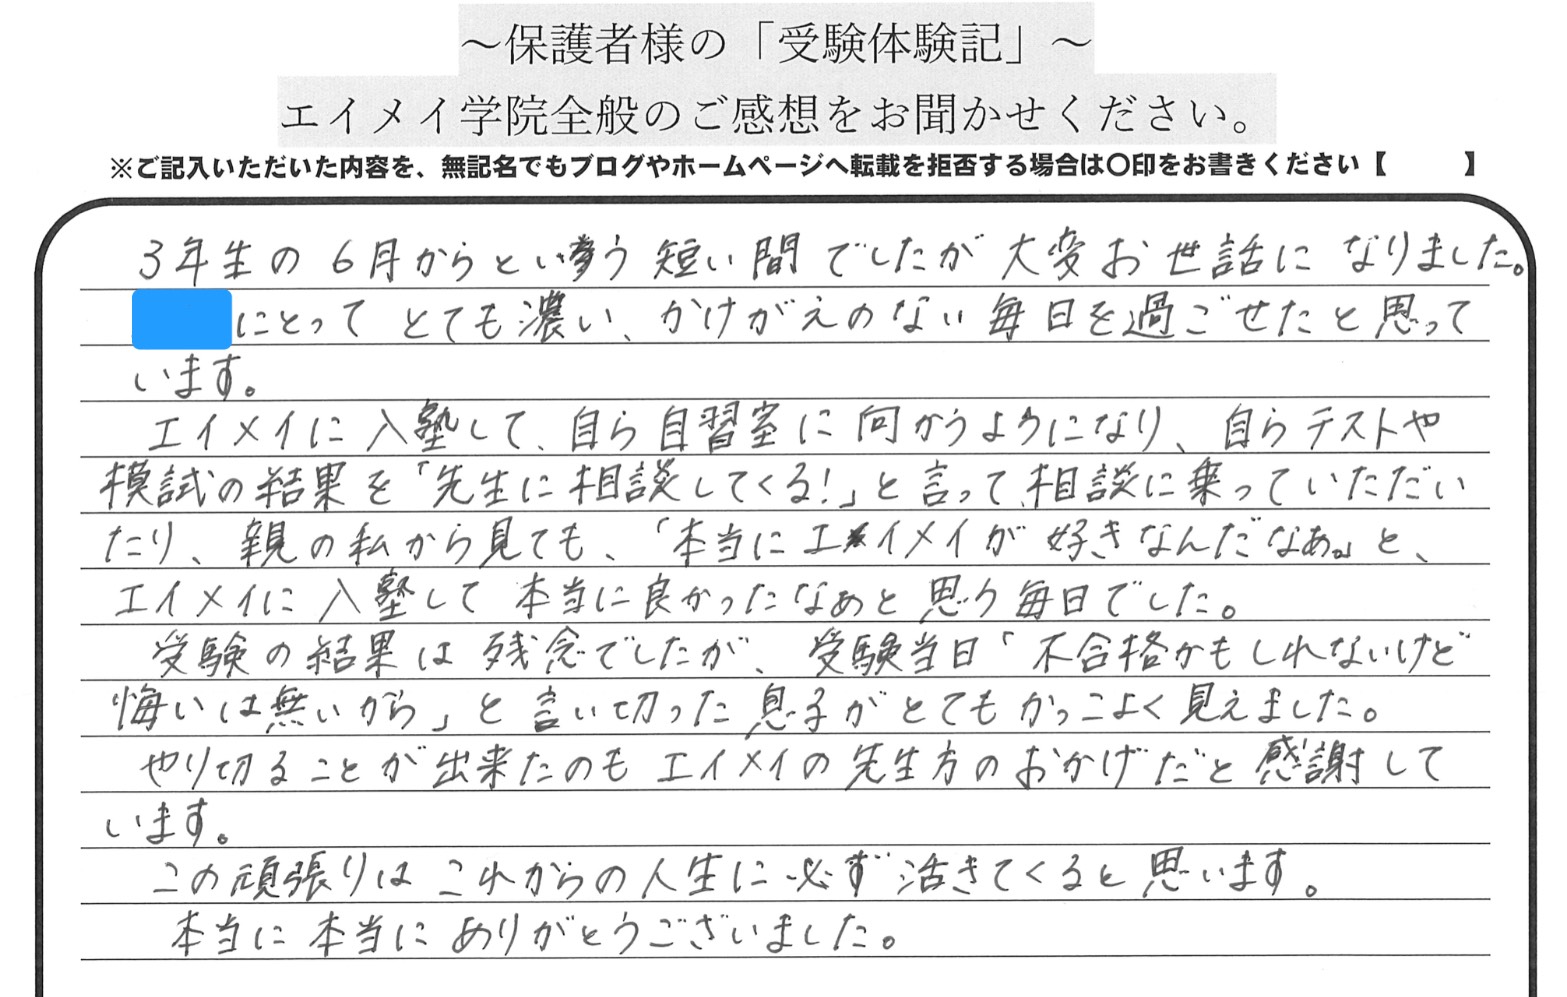 ～保護者様の「受験体験記」～
エイメイ学院全般のご感想をお聞かせください。
※ご記入いただいた内容を、無記名でもブログやホームページへ転載を拒否する場合は〇印をお書きください【　　　】
3年生の6月からという短い間でしたが大変お世話になりました。
にとってとても濃い、かけがえのない毎日を過ごせたと思って
います。
エイメイに入塾して、自ら自習室に向かうようになり、自らテストや
模試の結果を「先生に相談してくる!」と言って、相談に乗っていただい
たり、親の私から見ても、「本当にエイメイが好きなんだなぁ。」と、
エイメイに入塾して本当に良かったなぁと思う毎日でした。
受験の結果は残念でしたが、受験当日「不合格かもしれないけど
悔いは無いから」と言い切った息子がとてもかっこよく見えました。
やり切ることが出来たのもエイメイの先生方のおかげだと感謝して
います。
この頑張りはこれからの人生に必ず活きてくると思います。
本当に本当にありがとうございました。